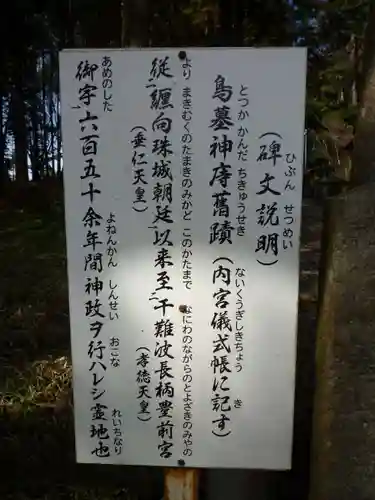 ひぶん せつめい
（碑文説明）
とつか かんだ ちきゅうせき ないくうぎしきちょう き
鳥墓神庤舊蹟（内宮儀式帳に記す）
より まきむくのたまきのみかど このかたまで なにわのながらのとよざきのみやの
従二纏向珠城朝廷一以来至二于難波長柄豊前宮
（垂仁天皇） （孝徳天皇）
あめのした よねんかん しんせい おこな れいちなり
御宇一六百五十余年間神政ヲ行ハレシ霊地也